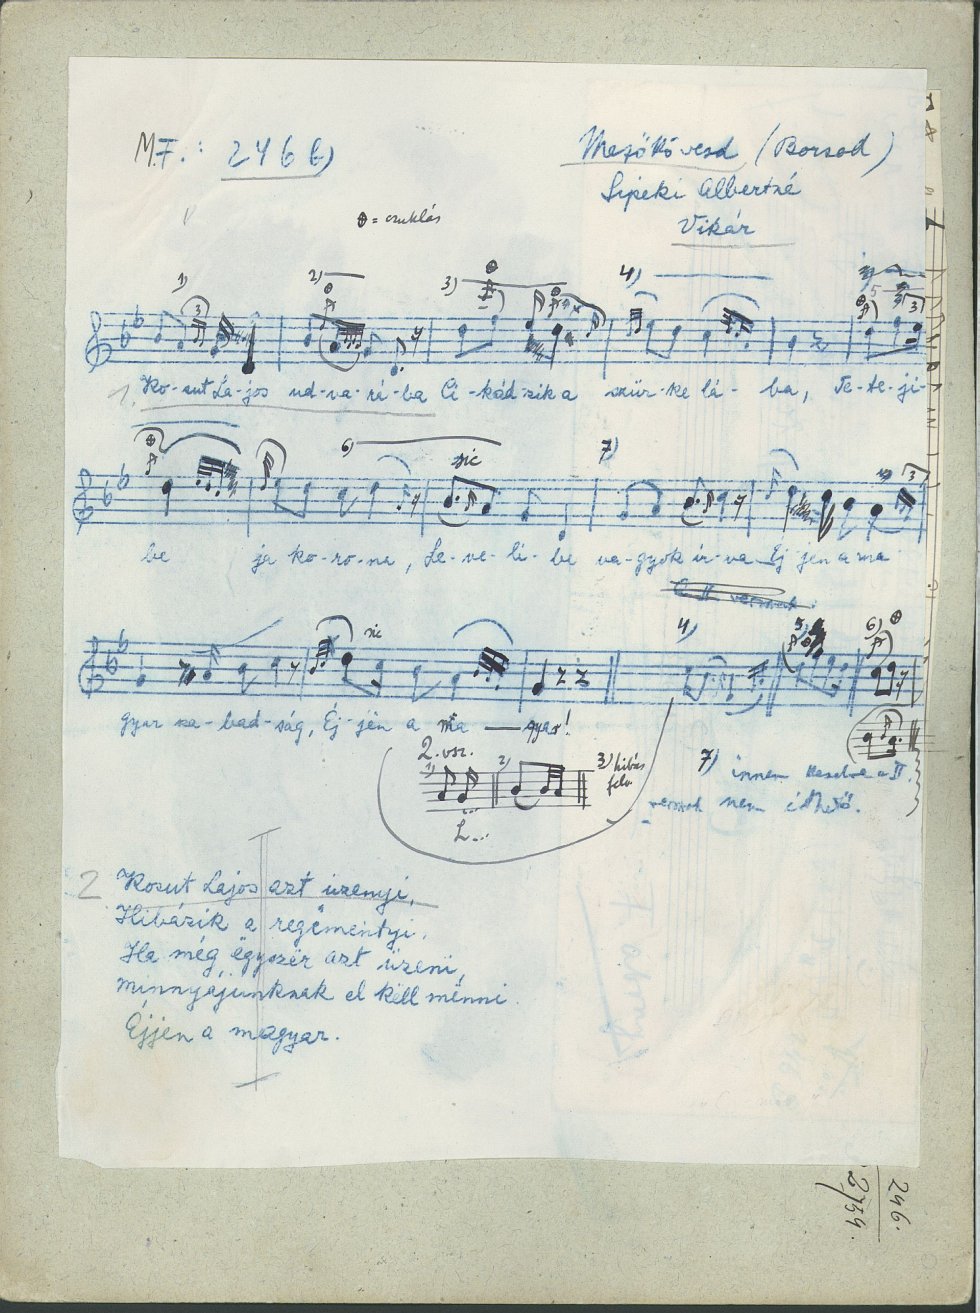 M.F.: 246 b)
Mezőkövesd (Borsod)
Sipeki Albertné
Vikár
⊕ = csuklás
1) 2) 3) 4) 5
1. Ko-sut La-jos ud-va-rá-ba Ci-kád-zik a szür-ke lá-ba, Te-te-ji-
6) sic 7)
be ja ko-ro-na, Le-ve-li-be va-gyok ír-va Éj-jen a ma
sic 4) 5) 6)
gyar sza-bad-ság, Éj-jén a ma — gyar!
2. vsz.
1) 2) 3) hibás
felv.
L...
7) innen kezdve a II.
versszak nem írható.
2 Kosut Lajos azt üzenyi,
Hibázik a regëmentyi.
Ha még ëgyszër azt üzeni,
Minnyájunknak el këll mënni
Éjjen a magyar.
246.